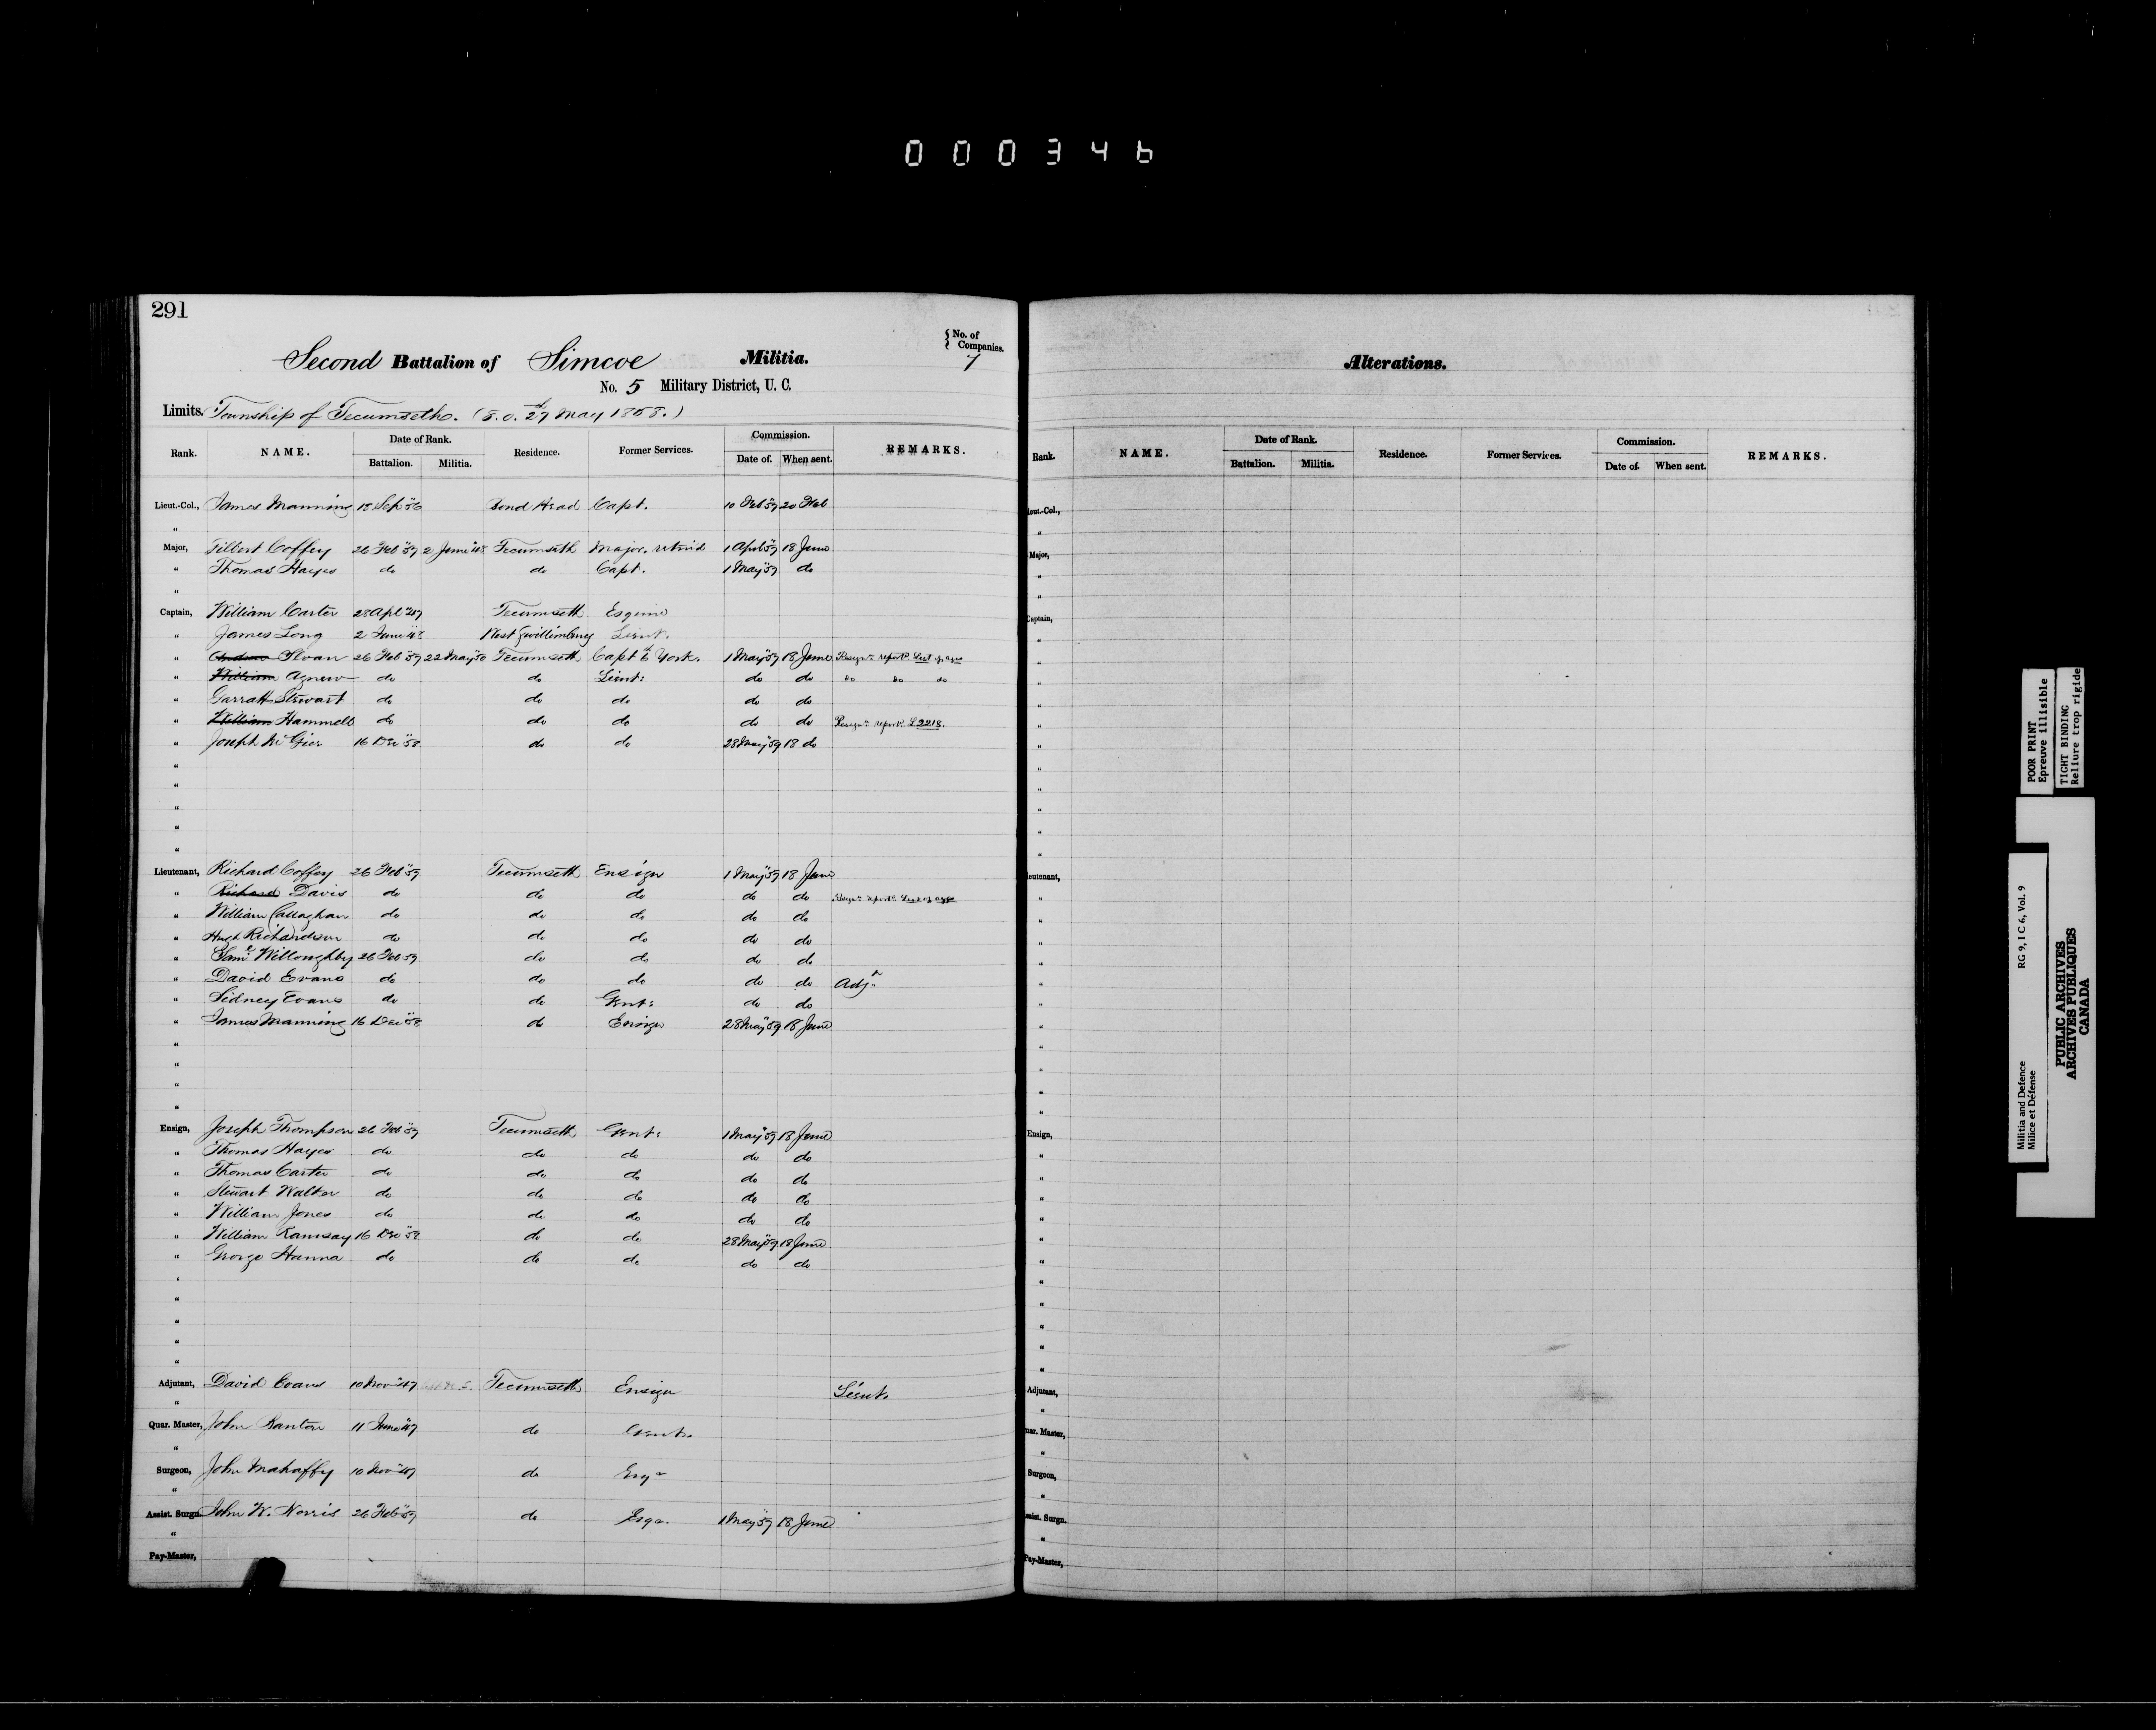 000346
291
Second Battalion of Simcoe Militia. { No. of Companies. 7
No. 5 Military District, U. C.
Limits. Township of Tecumseth. (G.O. 27 May 1858.)
Rank. NAME. Date of Rank. Battalion. Militia. Residence. Former Services. Commission. Date of. When sent. REMARKS.
Lieut.-Col., James Manning 18 Sep "56 Bond Head Capt. 10 Feb "59 20 Feb
"
Major, Tilbert Coffey 26 Feb "59 2 June "48 Tecumseth Major. retired 1 April "59 18 June
" Thomas Hayes do do Capt. 1 May "59 do
"
Captain, William Carter 28 Apl "47 Tecumseth Esquire
" James Long 2 June "48 West Gwillimbury Lieut.
" Andrew Sloan 26 Feb "59 22 May "50 Tecumseth Capt 6 York. 1 May "59 18 June Resign. report.
" William Agnew do do Lieut: do do do do do
" Garratt Stewart do do do do do
" William Hammell do do do do do Resign. report. L 2218.
" Joseph McGier 16 Dec "58 do do 28 May "59 18 do
"
"
"
"
"
Lieutenant, Richard Coffey 26 Feb "59 Tecumseth Ensign 1 May "59 18 June
" Richard Davis do do do do do Resign. report.
" William Callaghan do do do do do
" Hugh Richardson do do do do do
" Saml Willoughby 26 Feb 59 do do do do
" David Evans do do do do do Adjt.
" Sidney Evans do do Gent: do do
" James Manning 16 Dec "58 do Ensign 28 May "59 18 June
"
"
"
"
Ensign, Joseph Thompson 26 Feb "59 Tecumseth Gent: 1 May "59 18 June
" Thomas Hayes do do do do do
" Thomas Carter do do do do do
" Stewart Walker do do do do do
" William Jones do do do do do
" William Ramsay 16 Dec "58 do do 28 May "59 18 June
" George Hanna do do do do do
"
"
"
"
"
Adjutant, David Evans 10 Nov "47 Tecumseth Ensign Lieut.
"
Quar. Master, John Banton 11 June "47 do Gent.
"
Surgeon, John Mahaffy 10 Nov "47 do Esqr
"
Assist. Surgn. John W. Norris 26 Feb "59 do Esqr. 1 May "59 18 June
"
Pay-Master,
Alterations.
Rank. NAME. Date of Rank. Battalion. Militia. Residence. Former Services. Commission. Date of. When sent. REMARKS.
ieut.-Col.,
"
Major,
"
"
Captain,
"
"
"
"
"
"
"
"
"
"
"
ieutenant,
"
"
"
"
"
"
"
"
"
"
"
Ensign,
"
"
"
"
"
"
"
"
"
"
"
Adjutant,
"
uar. Master,
"
Surgeon,
"
ssist. Surgn.
"
Pay-Master,
POOR PRINT
Epreuve illisible
TIGHT BINDING
Reliure trop rigide
Militia and Defence
Milice et Défense
RG 9, I C 6, Vol. 9
PUBLIC ARCHIVES
ARCHIVES PUBLIQUES
CANADA